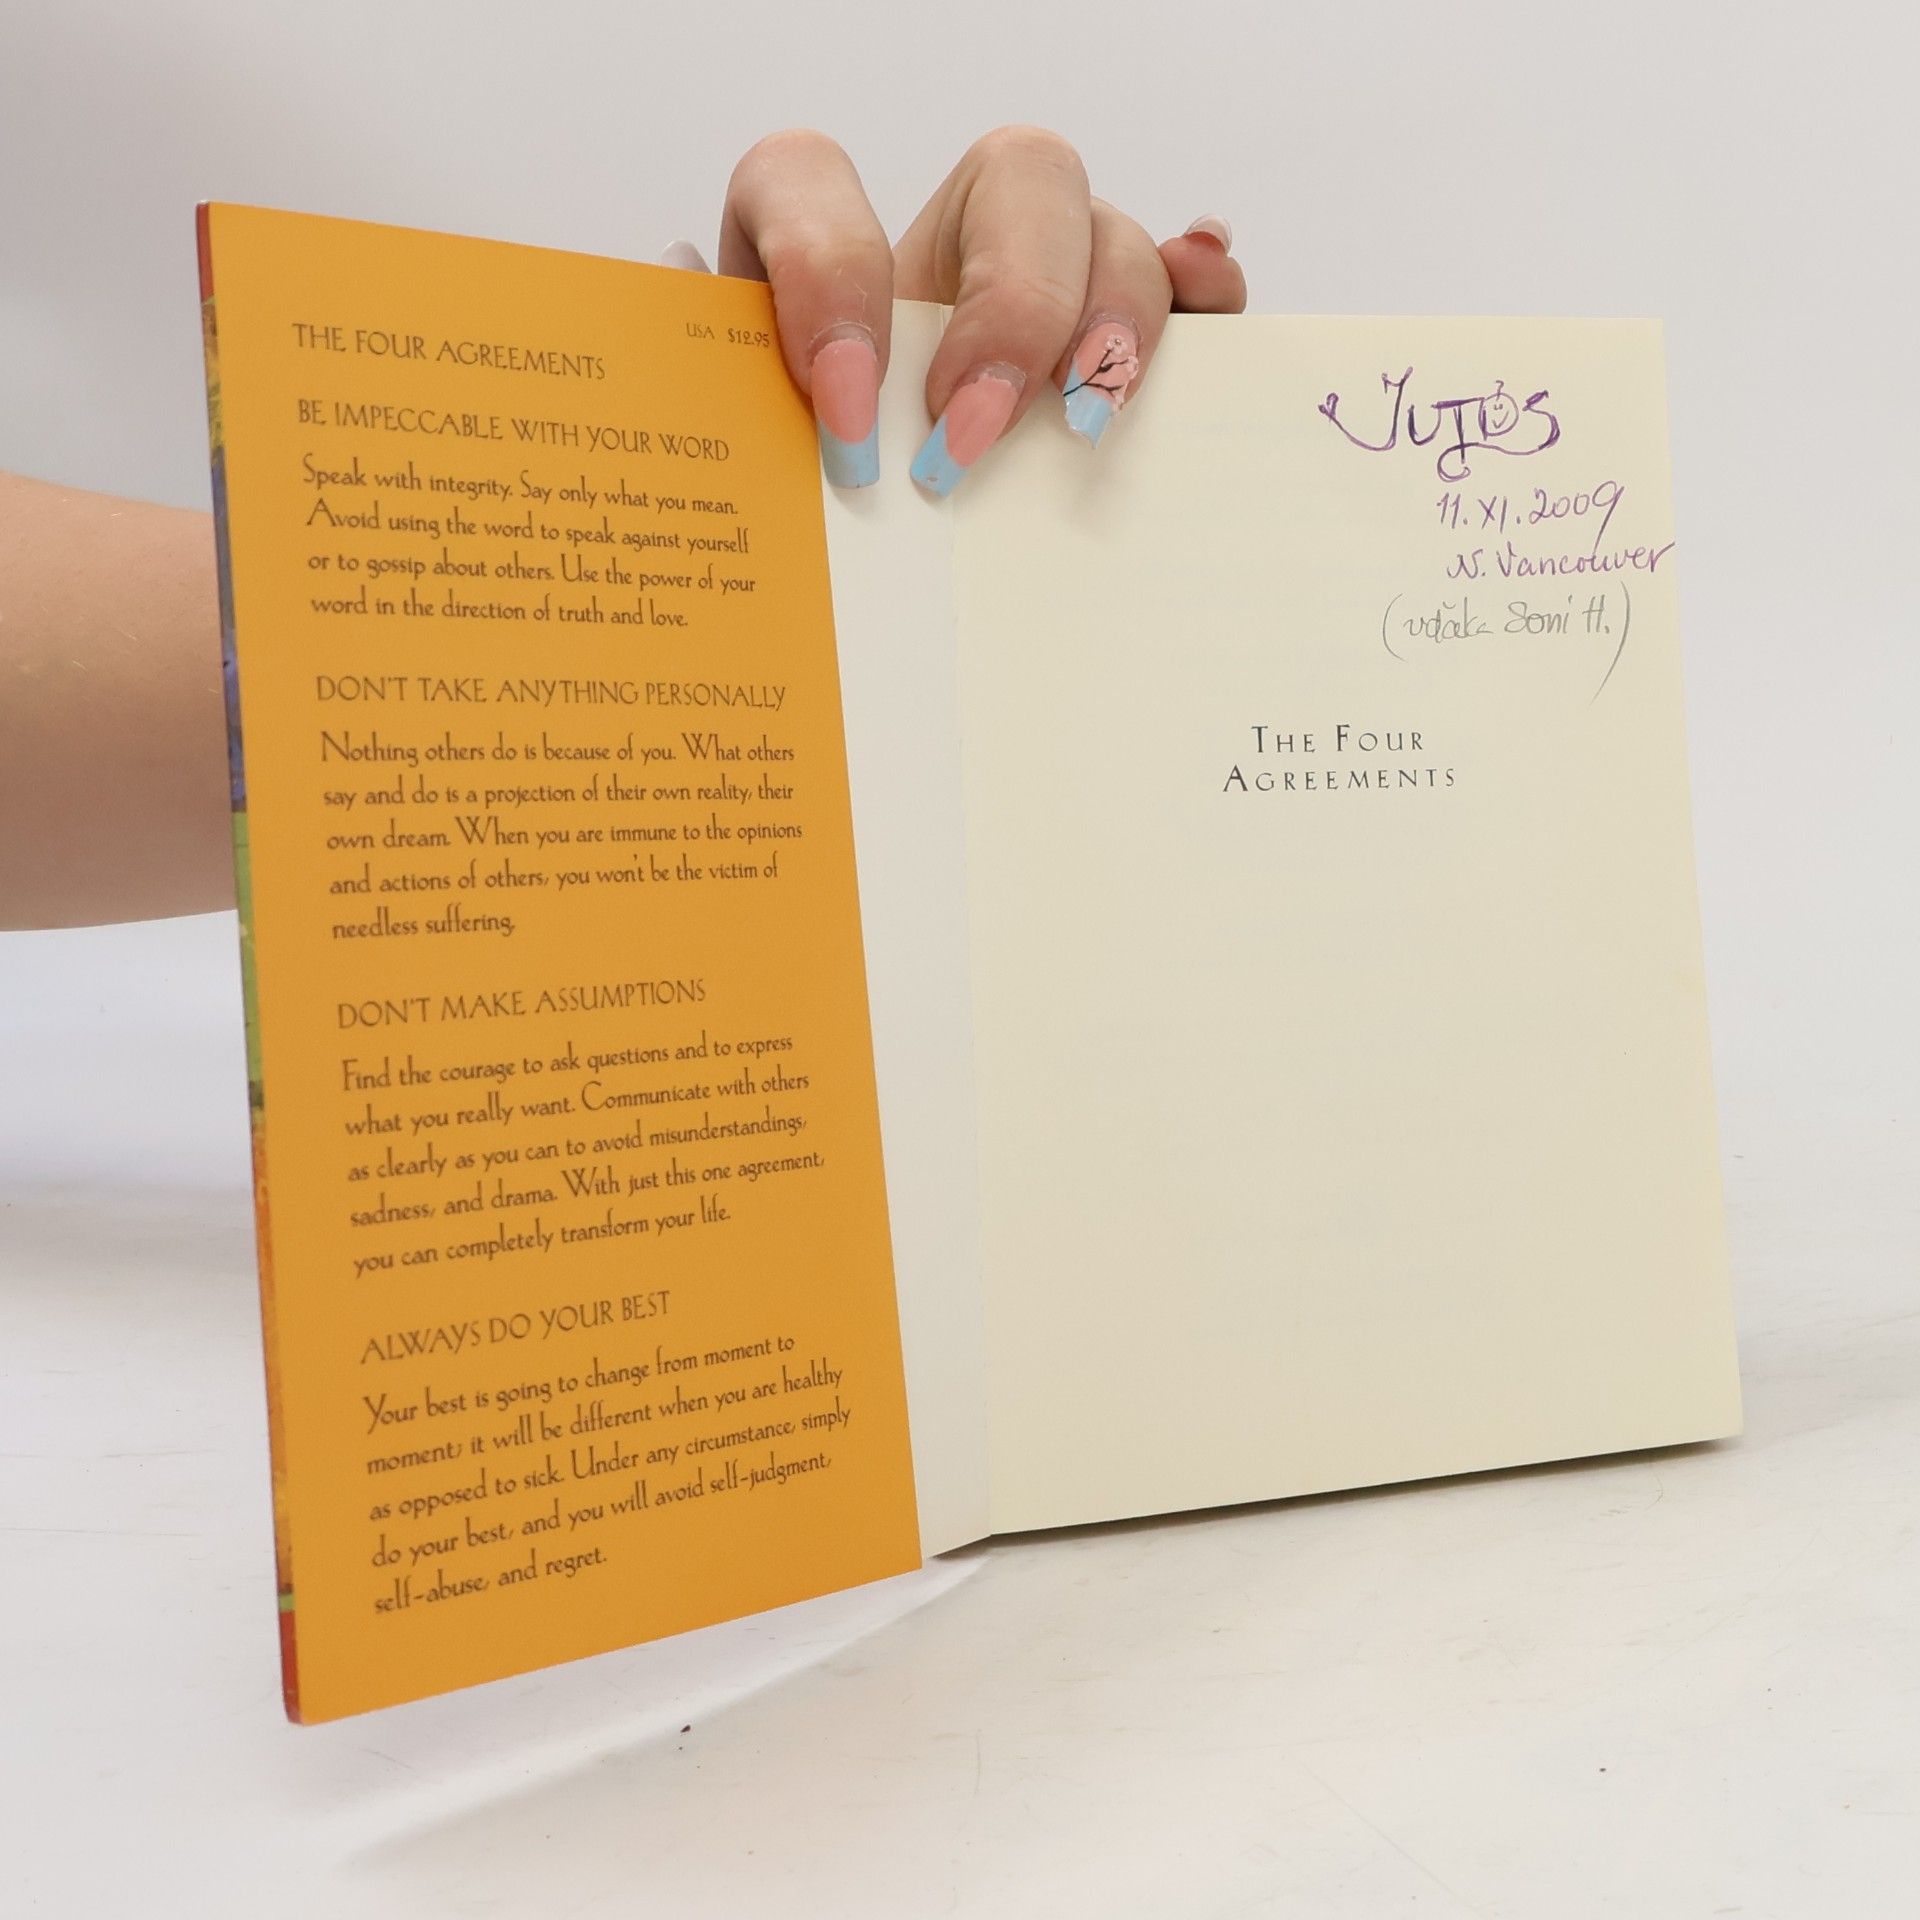 THE FOUR AGREEMENTS
USA $12.95
BE IMPECCABLE WITH YOUR WORD
Speak with integrity. Say only what you mean.
Avoid using the word to speak against yourself
or to gossip about others. Use the power of your
word in the direction of truth and love.
DON'T TAKE ANYTHING PERSONALLY
Nothing others do is because of you. What others
say and do is a projection of their own reality, their
own dream. When you are immune to the opinions
and actions of others, you won't be the victim of
needless suffering.
DON'T MAKE ASSUMPTIONS
Find the courage to ask questions and to express
what you really want. Communicate with others
as clearly as you can to avoid misunderstandings,
sadness, and drama. With just this one agreement,
you can completely transform your life.
ALWAYS DO YOUR BEST
Your best is going to change from moment to
moment; it will be different when you are healthy
as opposed to sick. Under any circumstance, simply
do your best, and you will avoid self-judgment,
self-abuse, and regret.
11. XI. 2009
N. Vancouver
(vďaka Soni H.)
THE FOUR
AGREEMENTS